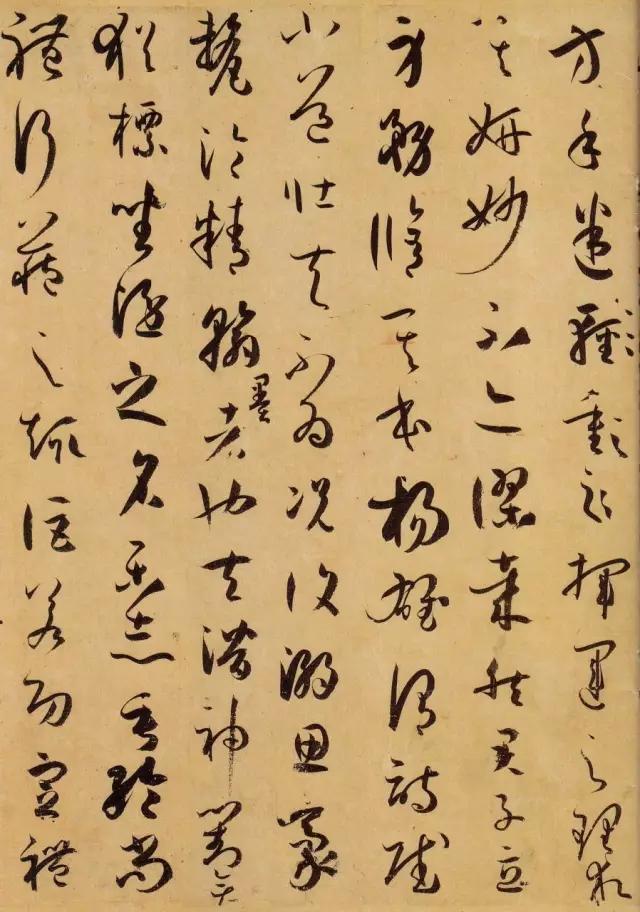 方手迷揮運之理求
其妍妙不亦謬哉然君子立
身務脩其本楊雄謂詩賦
小道壯夫不為況復溺思豪
氂淪精翰墨者也夫潛神對弈
猶標坐隱之名樂志垂綸尚
體行藏之趣詎若功宣禮